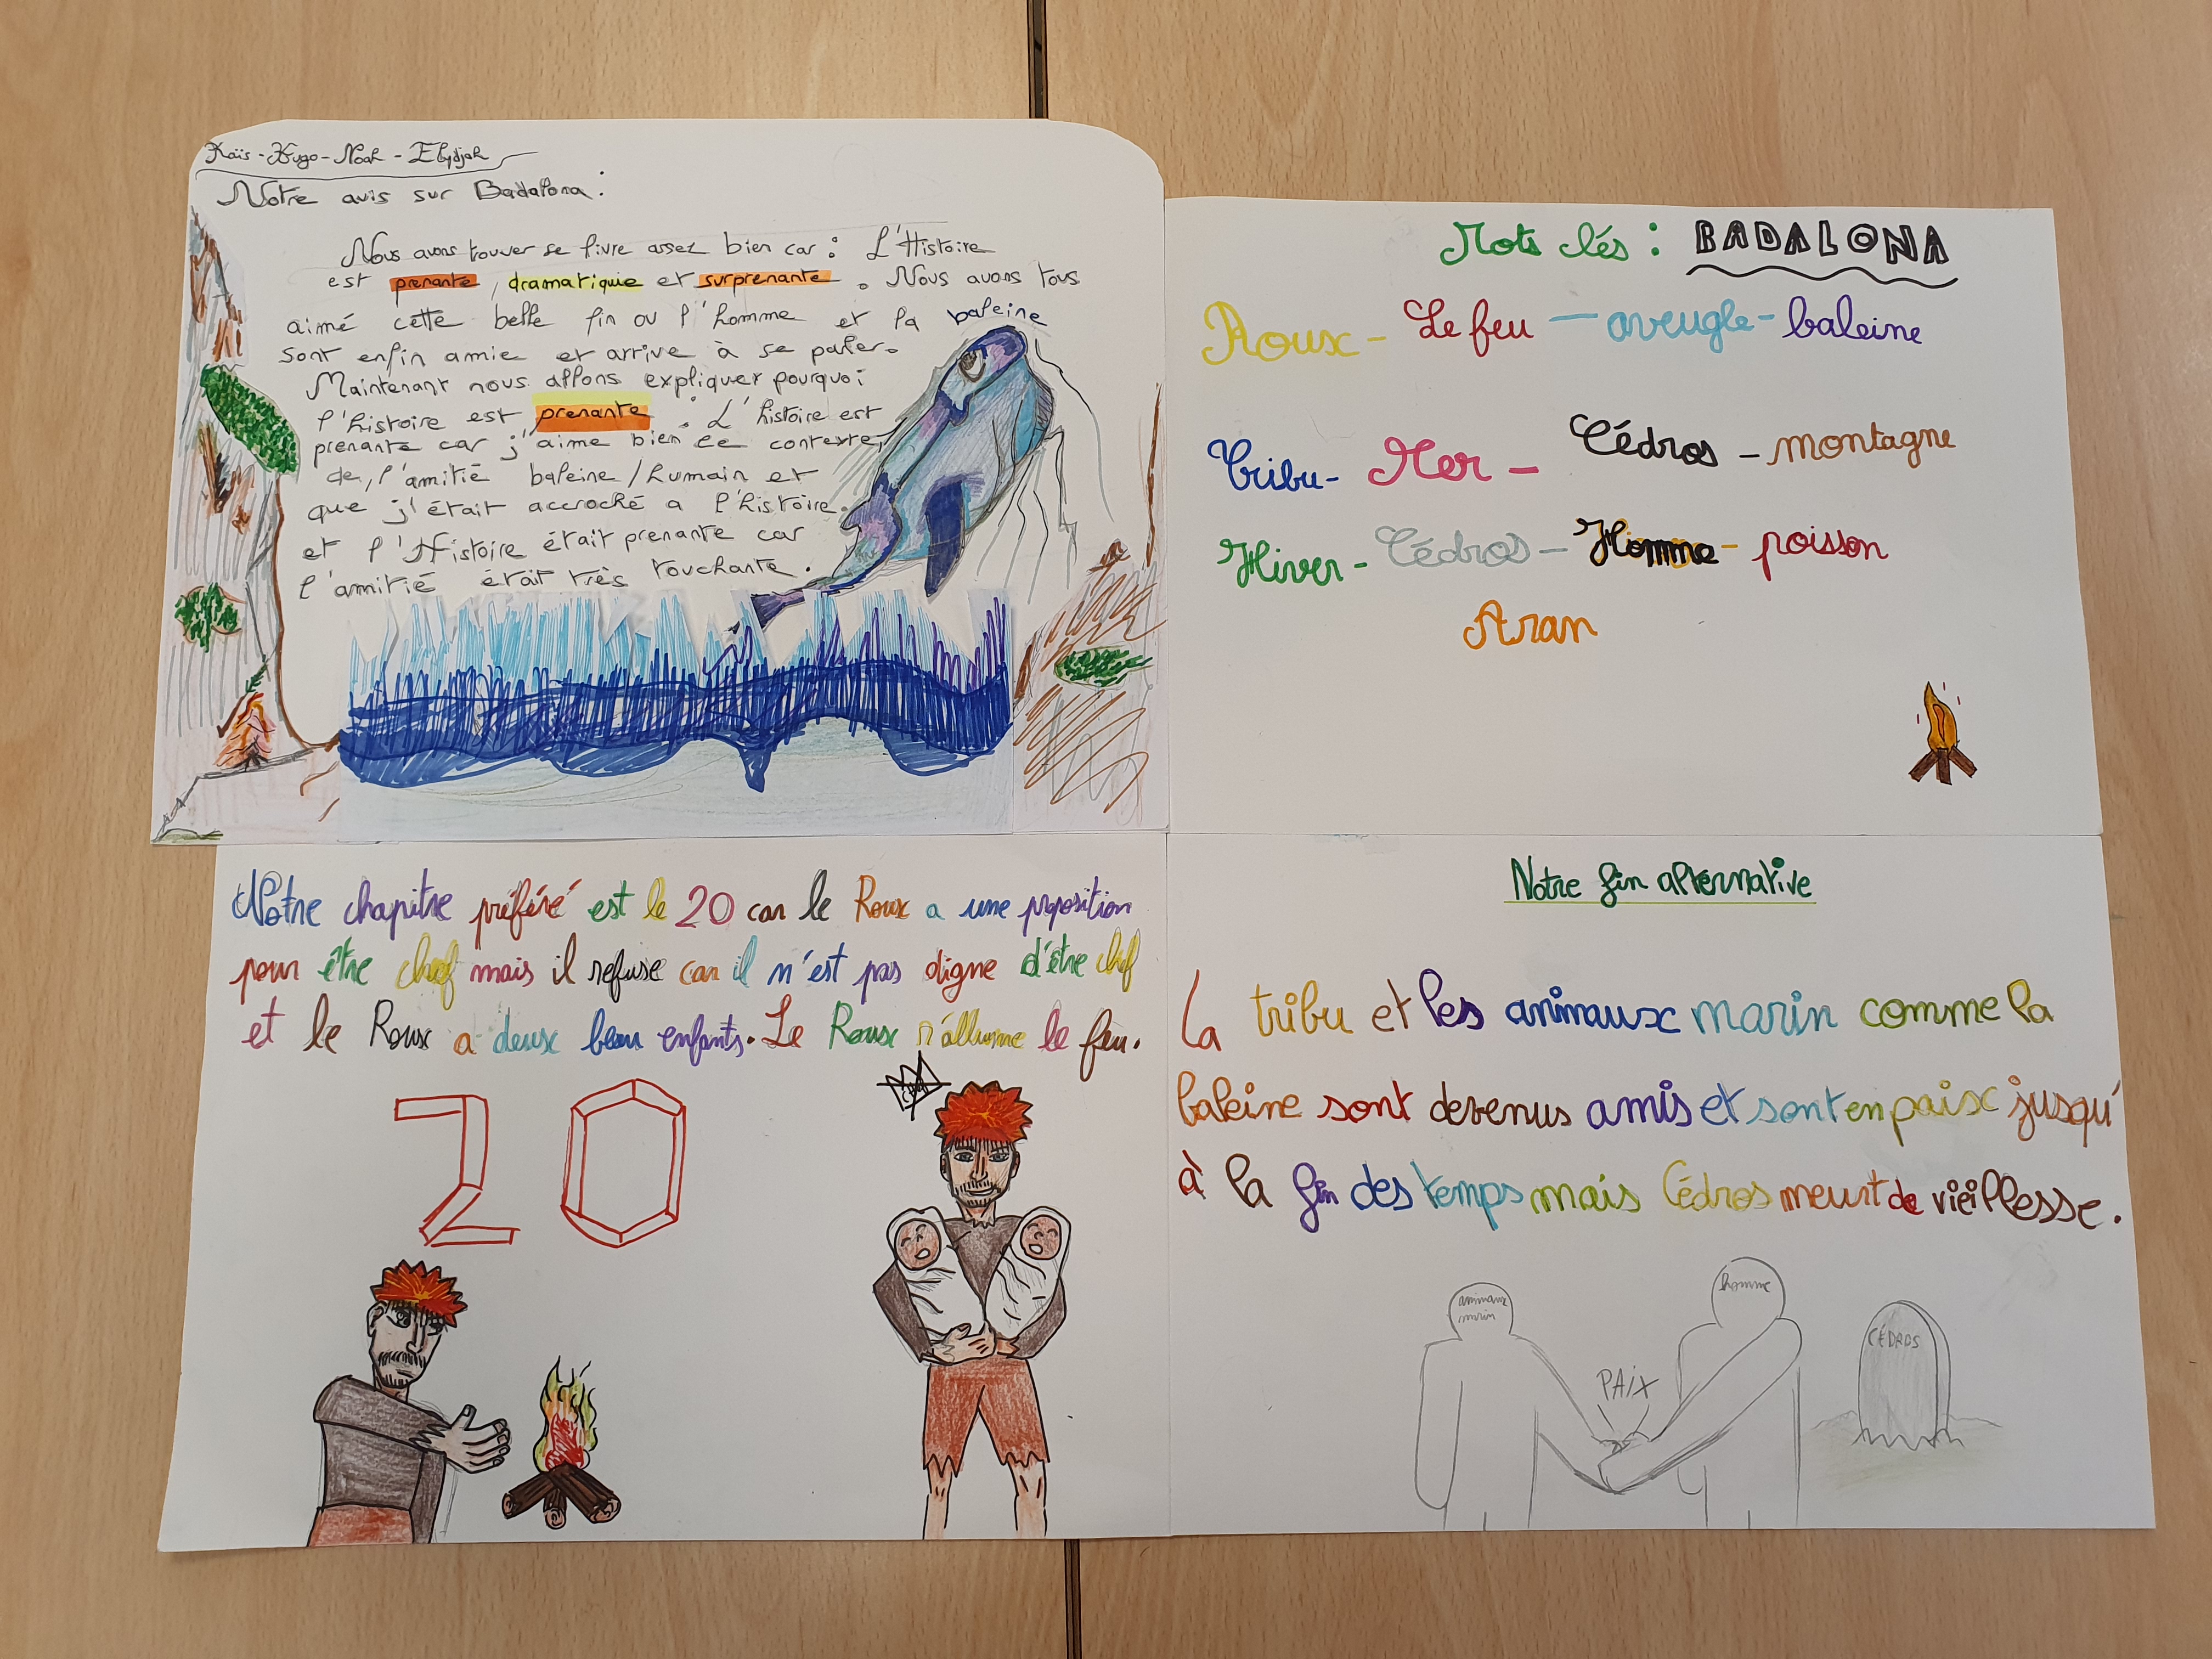 Kaïs - Hugo - Noah - Elydjah
Notre avis sur Badalona :
Nous avons trouver se livre assez bien car : L'Histoire
est prenante, dramatique et surprenante. Nous avons tous
aimé cette belle fin ou l'homme et la baleine
sont enfin amie et arrive à se parler.
Maintenant nous allons expliquer pourquoi
l'histoire est prenante : L'histoire est
prenante car j'aime bien ce contexte,
de, l'amitié baleine/humain et
que j'était accroché a l'histoire.
et l'Histoire était prenante car
l'amitié était très touchante.
Mots clés : BADALONA
Roux - Le feu - aveugle - baleine
Tribu - Mer - Cédros - montagne
Hiver - Cédros - Homme - poisson
Aran
Notre chapitre préféré est le 20 car le Roux a une proposition
pour être chef mais il refuse car il n'est pas digne d'être chef
et le Roux a deux beau enfants. Le Roux r'allume le feu.
20
Notre fin alternative
La tribu et les animaux marin comme la
baleine sont devenus amis et sont en paix jusqu'
à la fin des temps mais Cédros meurt de vieillesse.
animaux
marin
homme
PAiX
CÉDROS